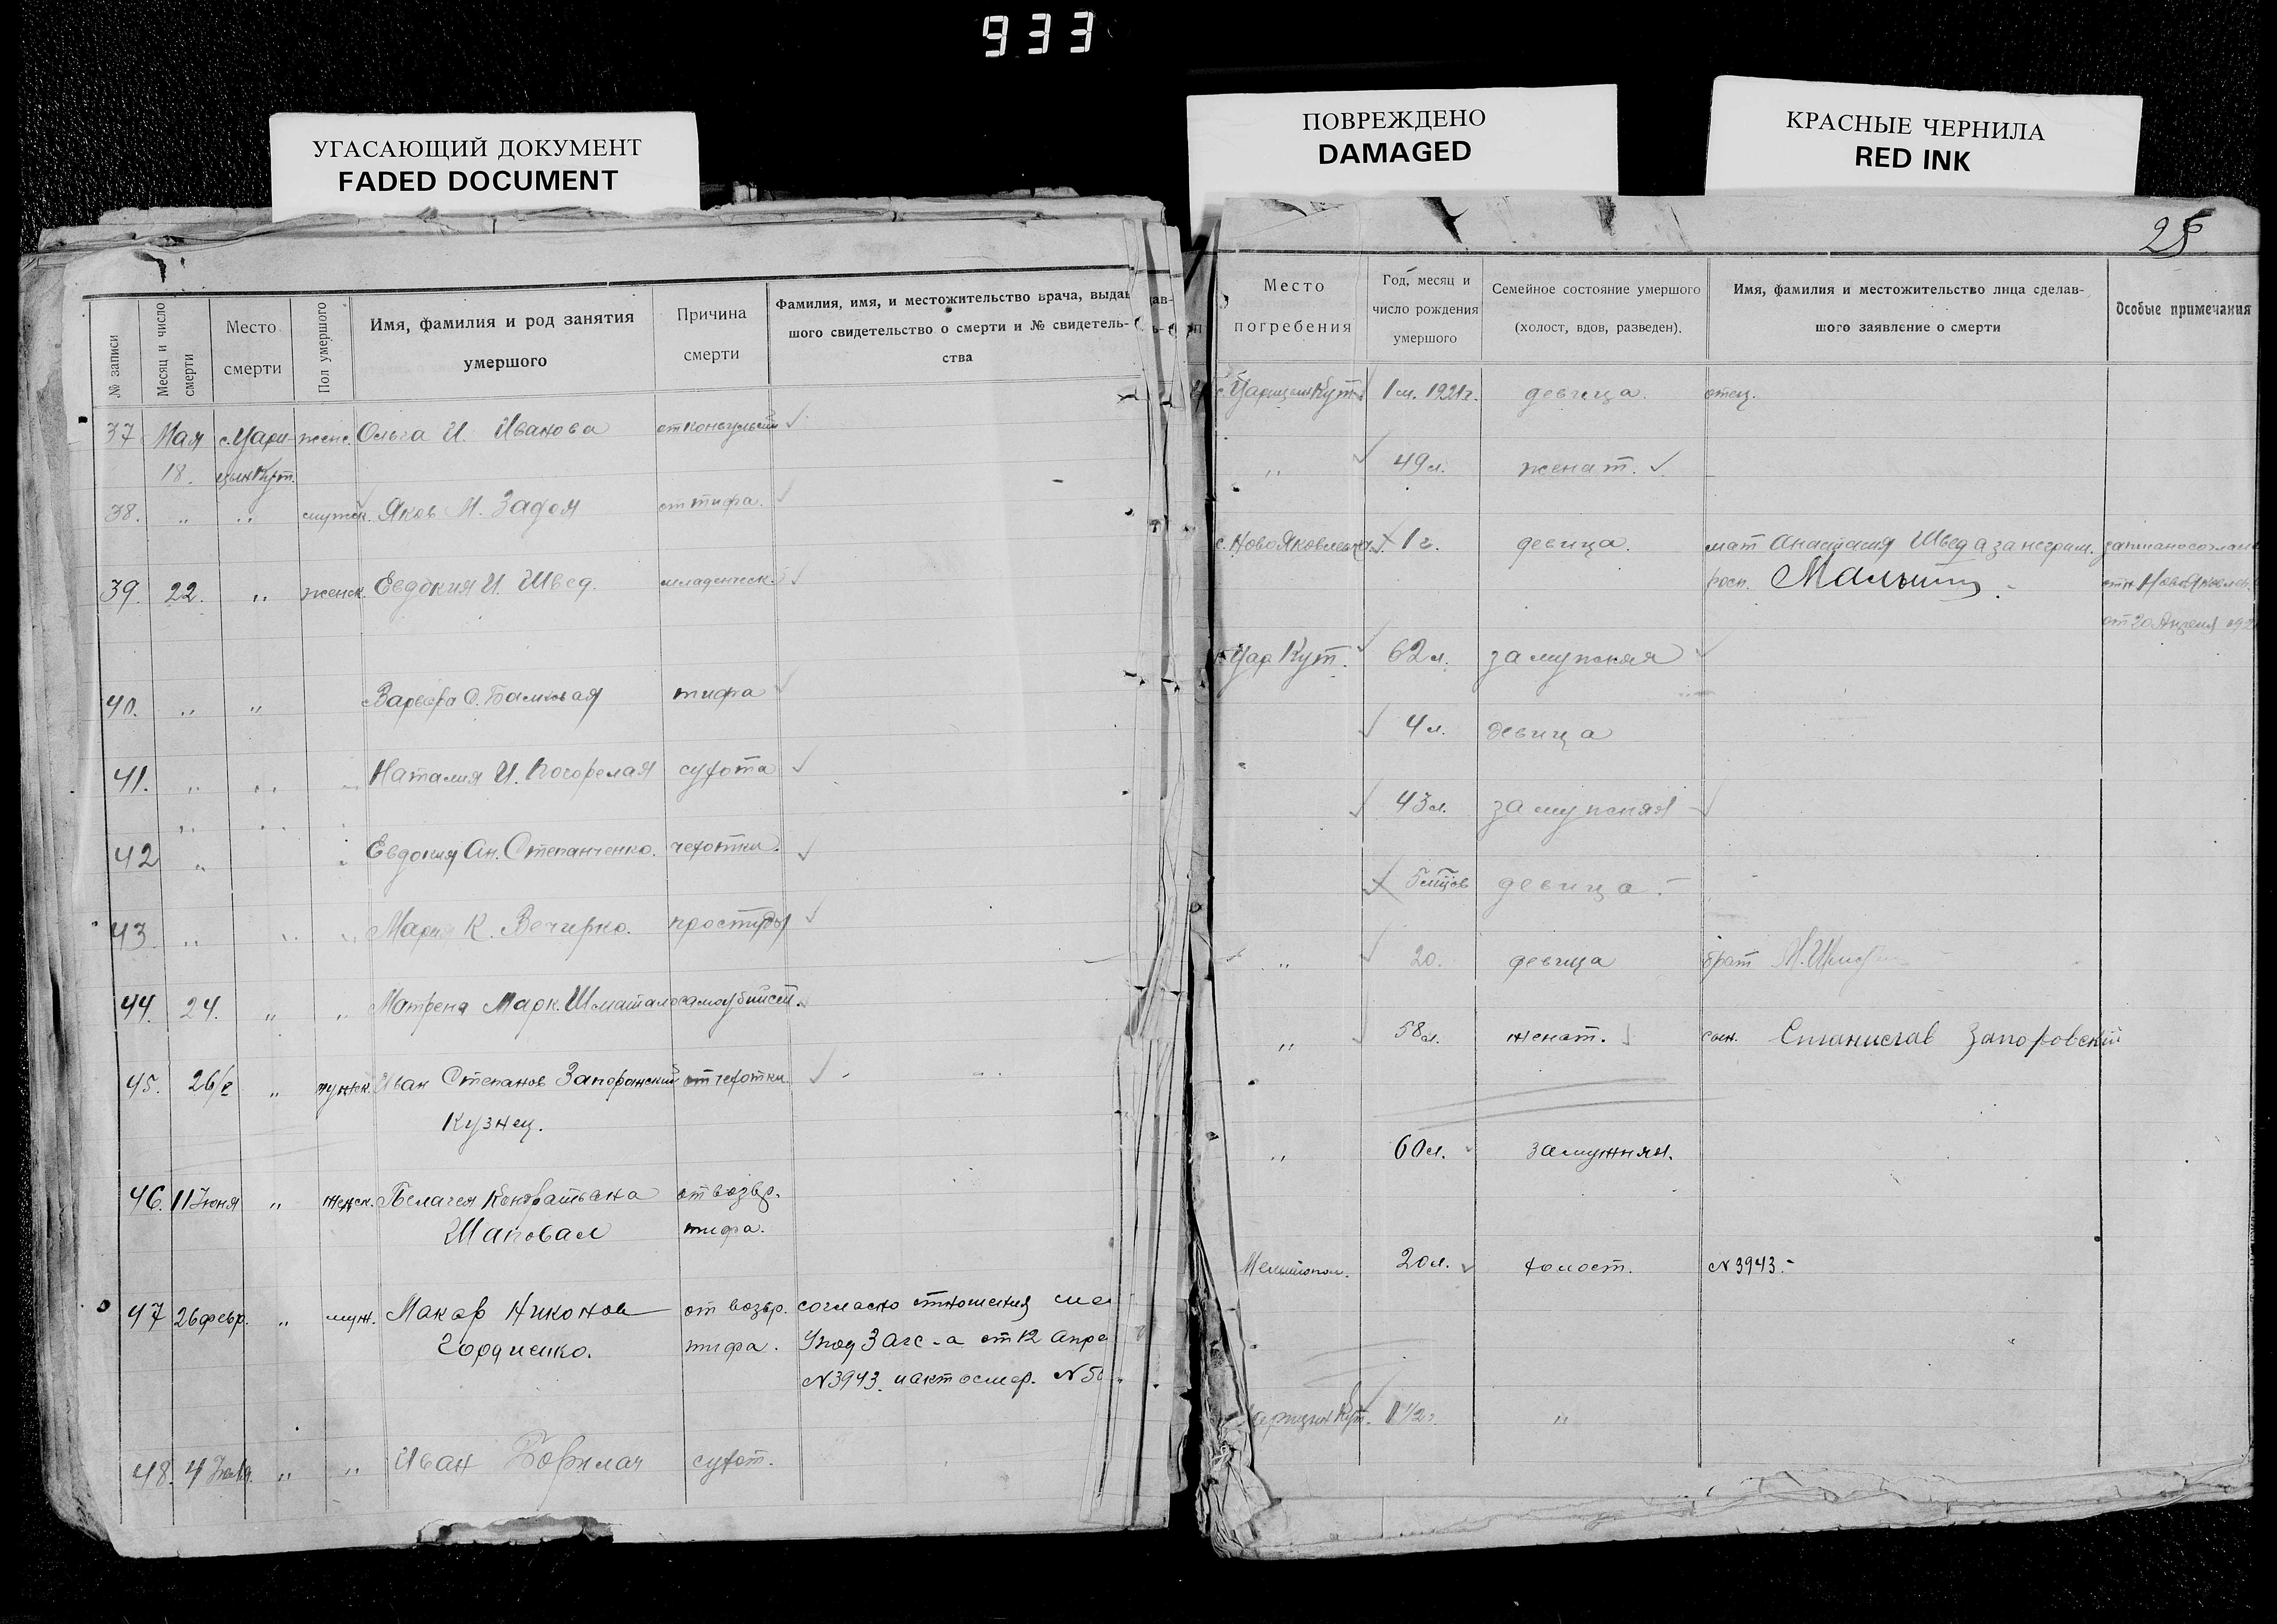 933
УГАСАЮЩИЙ ДОКУМЕНТ
FADED DOCUMENT
ПОВРЕЖДЕНО
DAMAGED
КРАСНЫЕ ЧЕРНИЛА
RED INK
№ записи
Месяц и число
смерти
Место
смерти
Пол умершого
Имя, фамилия и род занятия
умершого
Причина
смерти
Фамилия, имя, и местожительство врача, выдав-
шого свидетельство о смерти и № свидетель-
ства
37 Мая с. Цари- женс. Ольга И. Иванова от конвульсий
18. цын Кут.
38. " " мужск. Яков М. Задоя от тифа.
39. 22. " женск. Евдокия И. Швед. младенческ.
40. " " Варвара С. тифа
41. " " " Наталия И. Погорелая сухота
42 " " Евдокия Ан. Степанченко. чехотки.
43 " " " Мария К. Вечирко. простуды
44. 24. " " Матрена Марк. Шматало самоубийст.
45. 26/V " мужск. Иван Степанов Запоранский от чехотки
Кузнец.
46. 11 Июня " женск. Пелагея Кондратьевна от возвр.
Шаповал тифа.
47 26 февр. " муж. Макар Никонов от возвр. согласно отношения
Гордиенко. тифа. Упод Загс-а от 12 апре
N 3943. и акт о смер. N 5
48. 4 " " Иван сухот.
25
Место
погребения
Год, месяц и
число рождения
умершого
Семейное состояние умершого
(холост, вдов, разведен).
Имя, фамилия и местожительство лица сделав-
шого заявление о смерти
Особые примечания
с. Царицын Кут. 1 м. 1921 г. девица. отец.
" 49 л. женат.
с. НовоЯковлевка. 1 г. девица. мат Анастасия Швед а за неграм. записано соглас
росп. отн НовоЯковлев.
от 20 Апреля 192
с Цар Кут. 62 л. замужняя
4 л. девица
43 л. замужняя
5 м-цов девица.
" 20. девица брат М.
" 58 л. женат. сын. Станислав Запоровский
" 60 л. замужняя.
Мелитопол. 20 л. холост. N 3943.-
Царицын Кут. 1 1/2 г. "